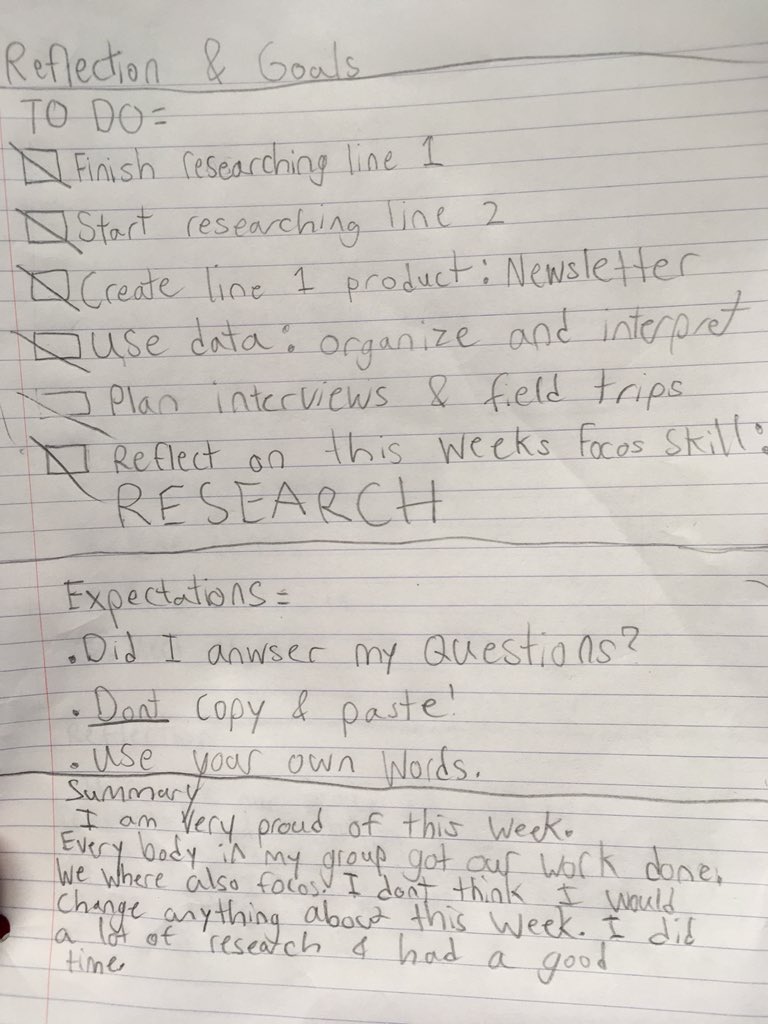 Reflection & Goals
TO DO=
Finish researching line 1
Start researching line 2
Create line 1 product: Newsletter
Use data: organize and interpret
Plan interviews & field trips
Reflect on this weeks focos skill:
RESEARCH
Expectations=
• Did I anwser my Questions?
• Dont copy & paste!
• Use your own words.
Summary
I am very proud of this week.
Every body in my group got our work done.
We where also focos. I don't think I would
change anything about this week. I did
a lot of research & had a good
time.